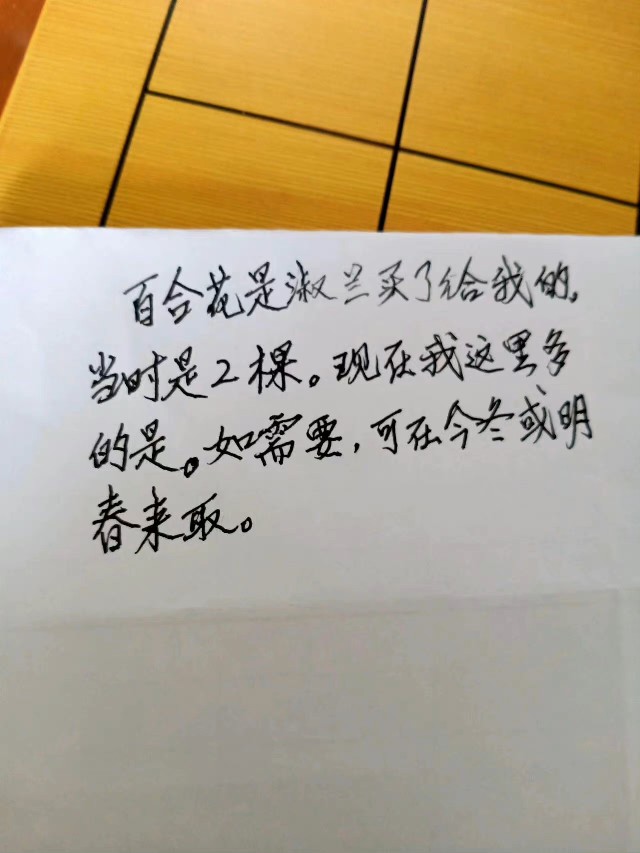 百合花是淑兰买了给我的。
当时是2棵。现在我这里多
的是。如需要,可在今冬或明
春来取。